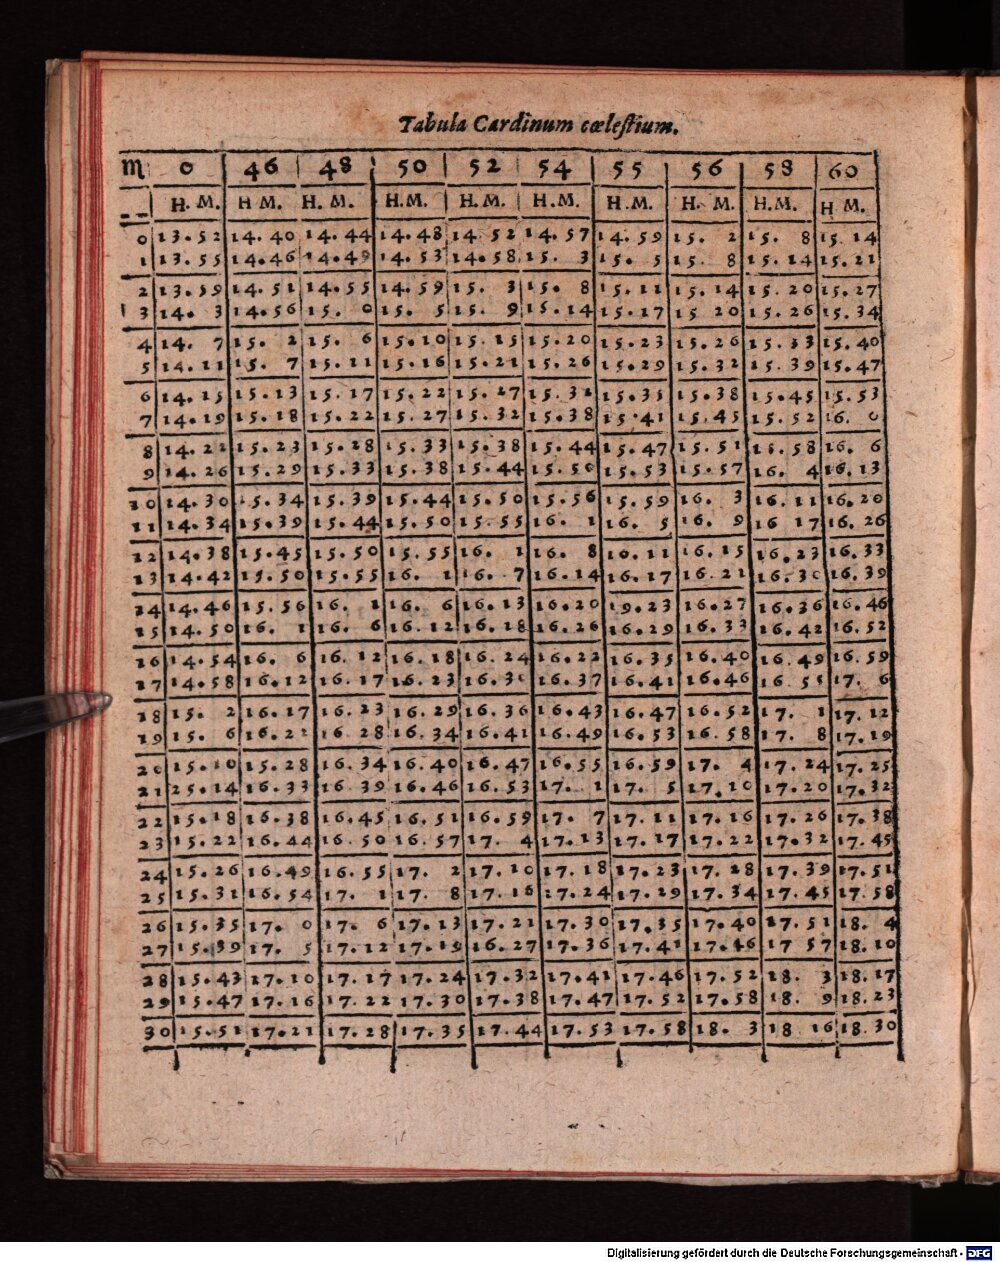 Tabula Cardinum cœlestium.
♏ 0 46 48 50 52 54 55 56 58 60
H. M. H M. H. M. H.M. H. M. H.M. H.M. H. M. H.M. H M.
0 13.52 14.40 14.44 14.48 14 52 14.57 14.59 15. 2 15. 8 15 14
1 13.55 14.46 14.49 14.53 14.58 15. 3 15. 5 15. 8 15.14 15.21
2 13.59 14.51 14.55 14.59 15. 3 15. 8 15.11 15.14 15.20 15.27
3 14. 3 14.56 15. 0 15. 5 15. 9 15.14 15.17 15 20 15.26 15.34
4 14. 7 15. 2 15. 6 15.10 15.15 15.20 15.23 15.26 15.33 15.40
5 14.11 15. 7 15.11 15.16 15.21 15.26 15.29 15.32 15.39 15.47
6 14.15 15.13 15.17 15.22 15.27 15.32 15.35 15.38 15.45 15.53
7 14.19 15.18 15.22 15.27 15.32 15.38 15.41 15.45 15.52 16. 0
8 14.22 15.23 15.28 15.33 15.38 15.44 15.47 15.51 15.58 16. 6
9 14.26 15.29 15.33 15.38 15.44 15.50 15.53 15.57 16. 4 16.13
10 14.30 15.34 15.39 15.44 15.50 15.56 15.59 16. 3 16.11 16.20
11 14.34 15.39 15.44 15.50 15.55 16. 1 16. 5 16. 9 16 17 16.26
12 14.38 15.45 15.50 15.55 16. 1 16. 8 10.11 16.15 16.23 16.33
13 14.42 15.50 15.55 16. 1 16. 7 16.14 16.17 16 21 16.30 16.39
14 14.46 15.56 16. 1 16. 6 16.13 16.20 19.23 16.27 16.36 16.46
15 14.50 16. 1 16. 6 16.12 16.18 16.26 16.29 16.33 16.42 16.52
16 14.54 16. 6 16. 12 16.18 16.24 16.22 16.35 16.40 16.49 16.59
17 14.58 16.12 16.17 16.23 16.3 16.37 16.41 16.46 16 55 17. 6
18 15. 2 16.17 16.23 16.29 16.36 16.43 16.47 16.52 17. 1 17.12
19 15. 6 16.22 16.28 16.34 16.41 16.49 16.53 16.58 17. 8 17.19
20 15.10 15.28 16.34 16.40 16.47 16.55 16.59 17. 4 17.24 17.25
21 25.14 16.33 16 39 16.46 16.53 17. 1 17. 5 17.10 17.20 17.32
22 15.18 16.38 16.45 16.51 16.59 17. 7 17.11 17.16 17.26 17.38
23 15.22 16.44 16.50 16.57 17. 4 17.13 17.17 17.22 17.32 17.45
24 15.26 16.49 16.55 17. 2 17.10 17.18 17.23 17.28 17.39 17.51
25 15.31 16.54 17. 1 17. 8 17.16 17.24 17.29 17.34 17.45 17.58
26 15.35 17. 0 17. 6 17.13 17.21 17.30 17.35 17.40 17.51 18. 4
27 15.39 17. 5 17.12 17.19 16.27 17.36 17.41 17.46 17 57 18.10
28 15.43 17.10 17.17 17.24 17.32 17.41 17.46 17.52 18. 3 18.17
29 15.47 17.16 17.22 17.30 17.38 17.47 17.52 17.58 18. 9 18.23
30 15.51 17.21 17.28 17.35 17.44 17.53 17.58 18. 3 18 16 18.30
Digitalisierung gefördert durch die Deutsche Forschungsgemeinschaft - DFG